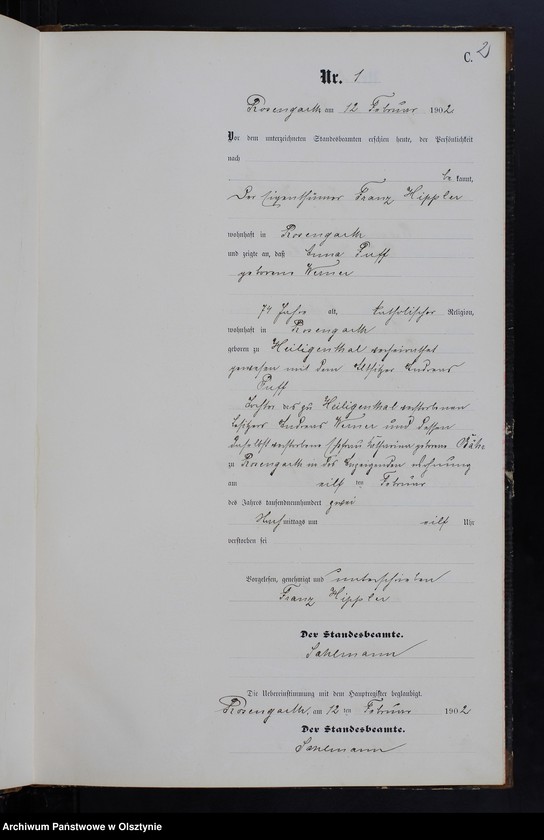 C. 2
Nr. 1
Rosengarth am 12 Februar 1902
Vor dem unterzeichneten Standesbeamten erschien heute, der Persönlichkeit
nach
be kannt,
Der Eigenthümer Franz Hippler
wohnhaft in Rosengarth
und zeigte an, daß Anna Puff
geborene Werner
74 Jahre alt, katholischer Religion,
wohnhaft in Rosengarth
geboren zu Heiligenthal verheirathet
gewesen mit dem Altsitzer Andreas
Puff
Tochter des zu Heiligenthal verstorbenen
Besitzers Andreas Werner und dessen
daselbst verstorbene Ehefrau Katharina geborene Bähr
zu Rosengarth in des Anzeigenden Wohnung
am eilf ten Februar
des Jahres tausendneunhundert zwei
Nach mittags um eilf Uhr
verstorben sei
Vorgelesen, genehmigt und unterschrieben
Franz Hippler
Der Standesbeamte.
Sahlmann
Die Uebereinstimmung mit dem Hauptregister beglaubigt.
Rosengarth, am 12 ten Februar 1902
Der Standesbeamte.
Sahlmann
Archiwum Państwowe w Olsztynie